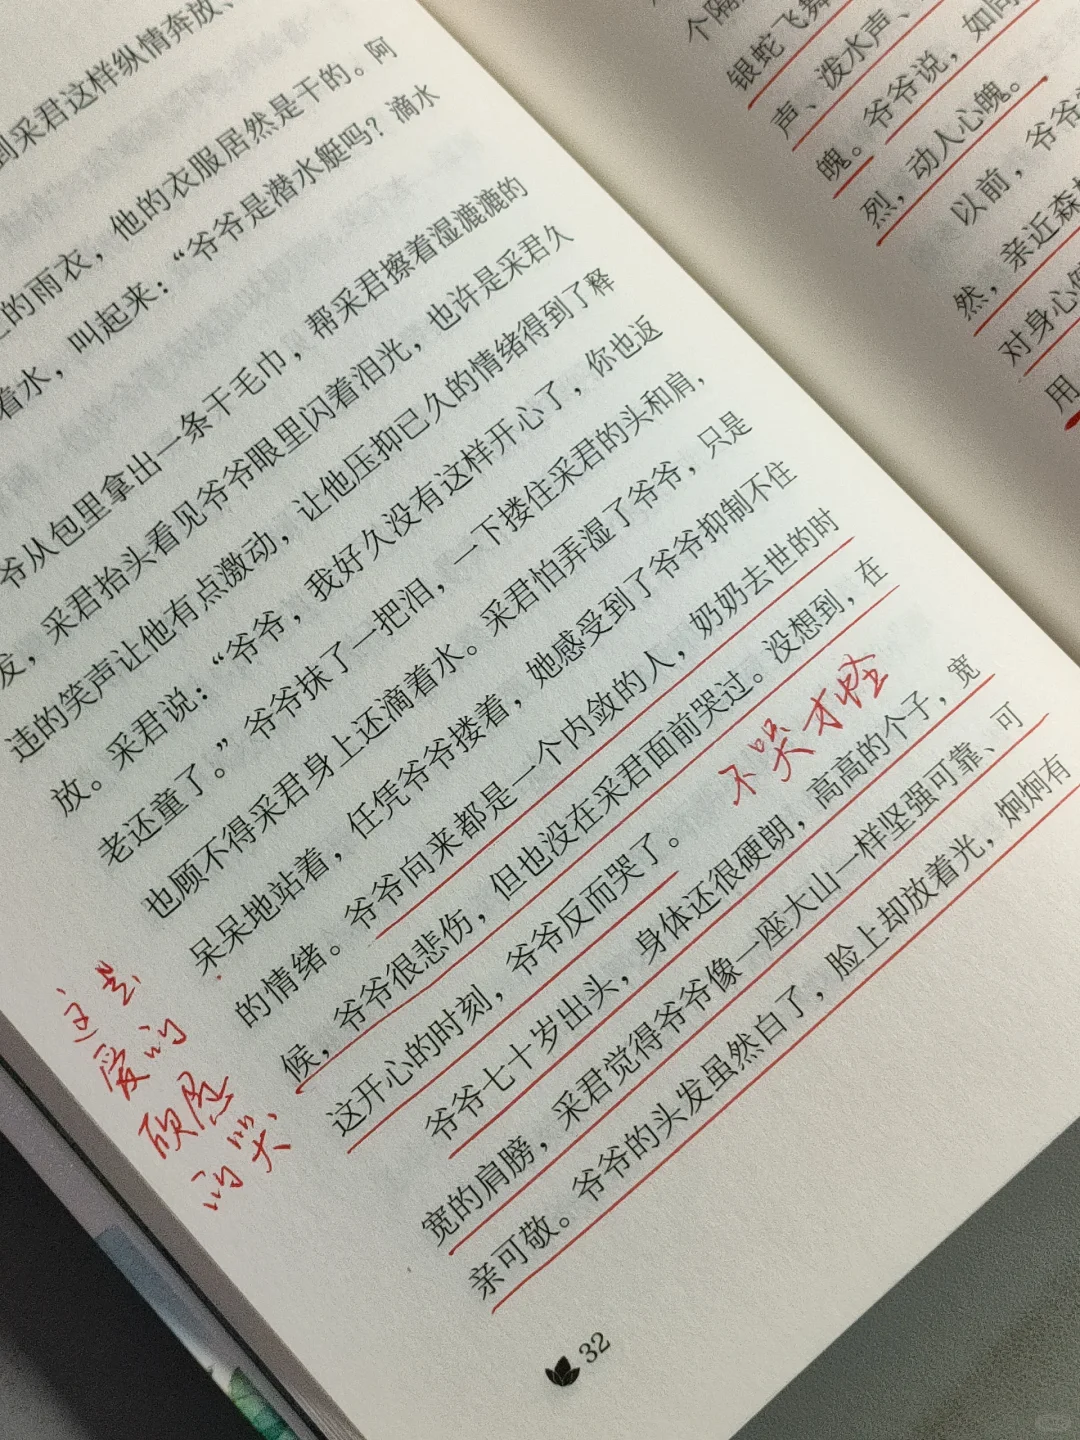 到采君这样纵情奔放、
的雨衣，他的衣服居然是干的。阿
着水，叫起来：“爷爷是潜水艇吗？滴水
爷从包里拿出一条干毛巾，帮采君擦着湿漉漉的
发，采君抬头看见爷爷眼里闪着泪光，也许是采君久
违的笑声让他有点激动，让他压抑已久的情绪得到了释
放。采君说：“爷爷，我好久没有这样开心了，你也返
老还童了。”爷爷抹了一把泪，一下搂住采君的头和肩，
也顾不得采君身上还滴着水。采君怕弄湿了爷爷，只是
呆呆地站着，任凭爷爷搂着，她感受到了爷爷抑制不住
的情绪。爷爷向来都是一个内敛的人，奶奶去世的时
候，爷爷很悲伤，但也没在采君面前哭过。没想到，在
这开心的时刻，爷爷反而哭了。
不哭才怪
爷爷七十岁出头，身体还很硬朗，高高的个子，宽
宽的肩膀，采君觉得爷爷像一座大山一样坚强可靠、可
亲可敬。爷爷的头发虽然白了，脸上却放着光，炯炯有
这是
爱的
的哭
32
个隔
银蛇飞舞
声、泼水声、
魄。爷爷说，如同
烈，动人心魄。
以前，爷爷
然，亲近森
对身心
用